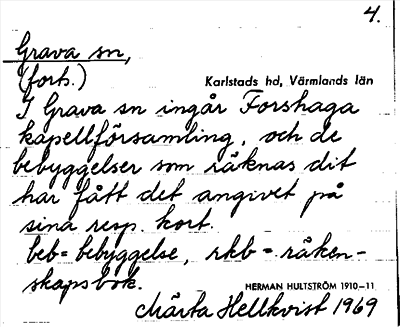 4.
Grava sn,
(forts.)
Karlstads hd, Värmlands län
I Grava sn ingår Forshaga
kapellförsamling, och de
bebyggelser som räknas dit
har fått det angivet på
sina resp. kort.
beb = bebyggelse, rkb = räken-
skapsbok.
HERMAN HULTSTRÖM 1910-11
Märta Hellkvist 1969